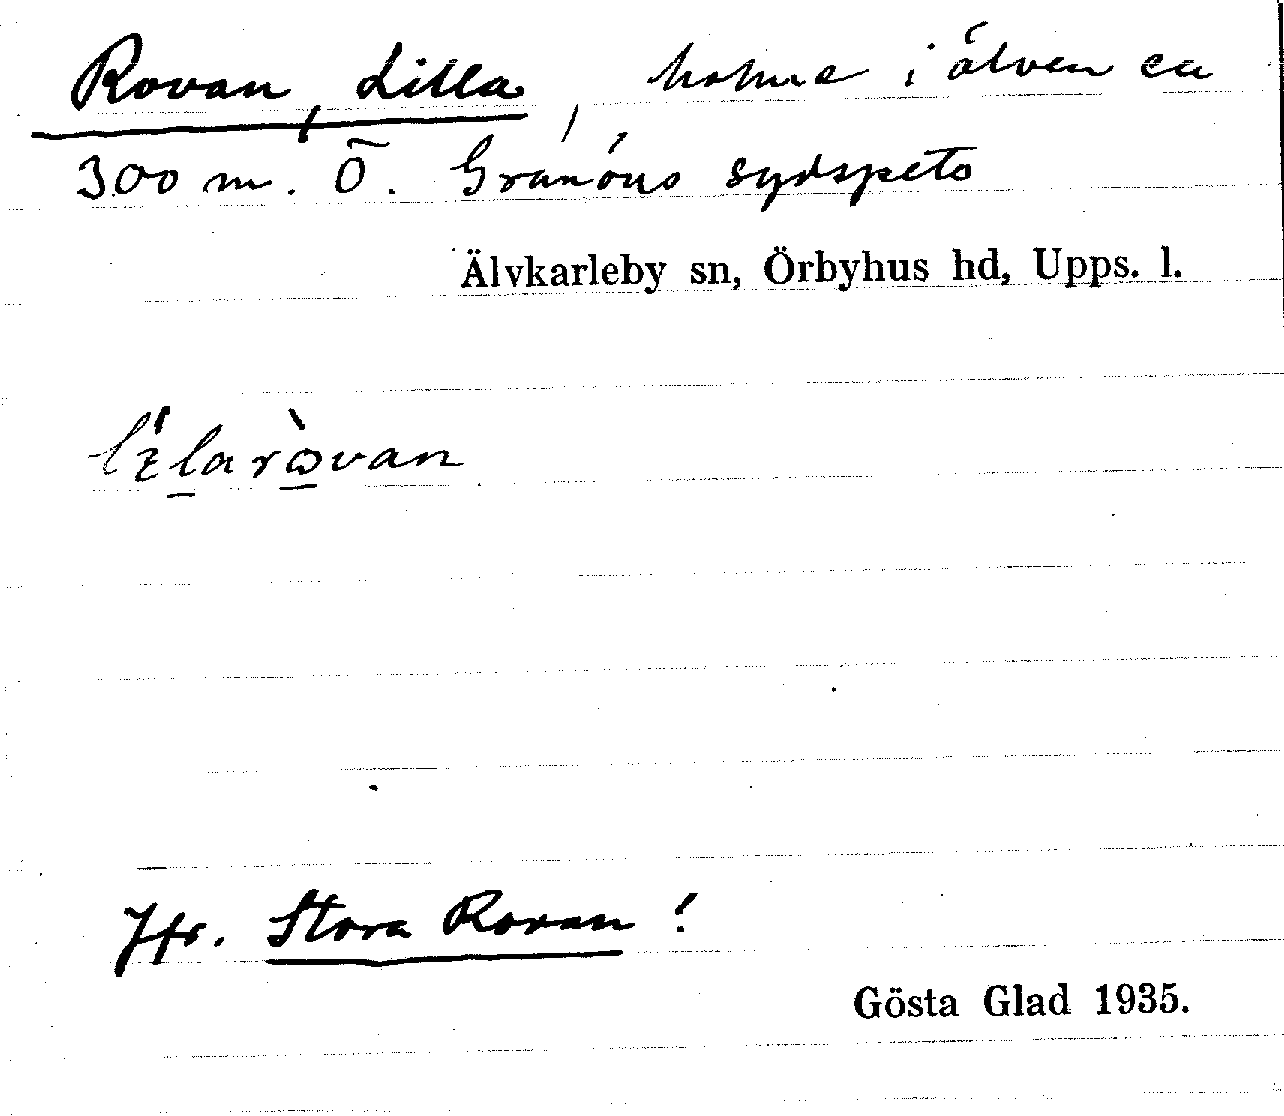 Rovan, Lilla, holme i älven ca
300 m. Ö. Granöns sydspets
Älvkarleby sn, Örbyhus hd, Upps. l.
Jfr. Stora Rovan!
Gösta Glad 1935.